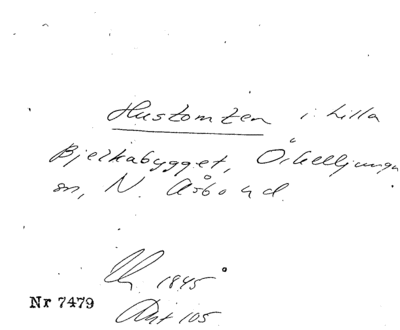 Hustomten i Lilla
Bjerkabygget, Örkelljunga
sn, N. Åsbo hd.
1845
Nr 7479
105